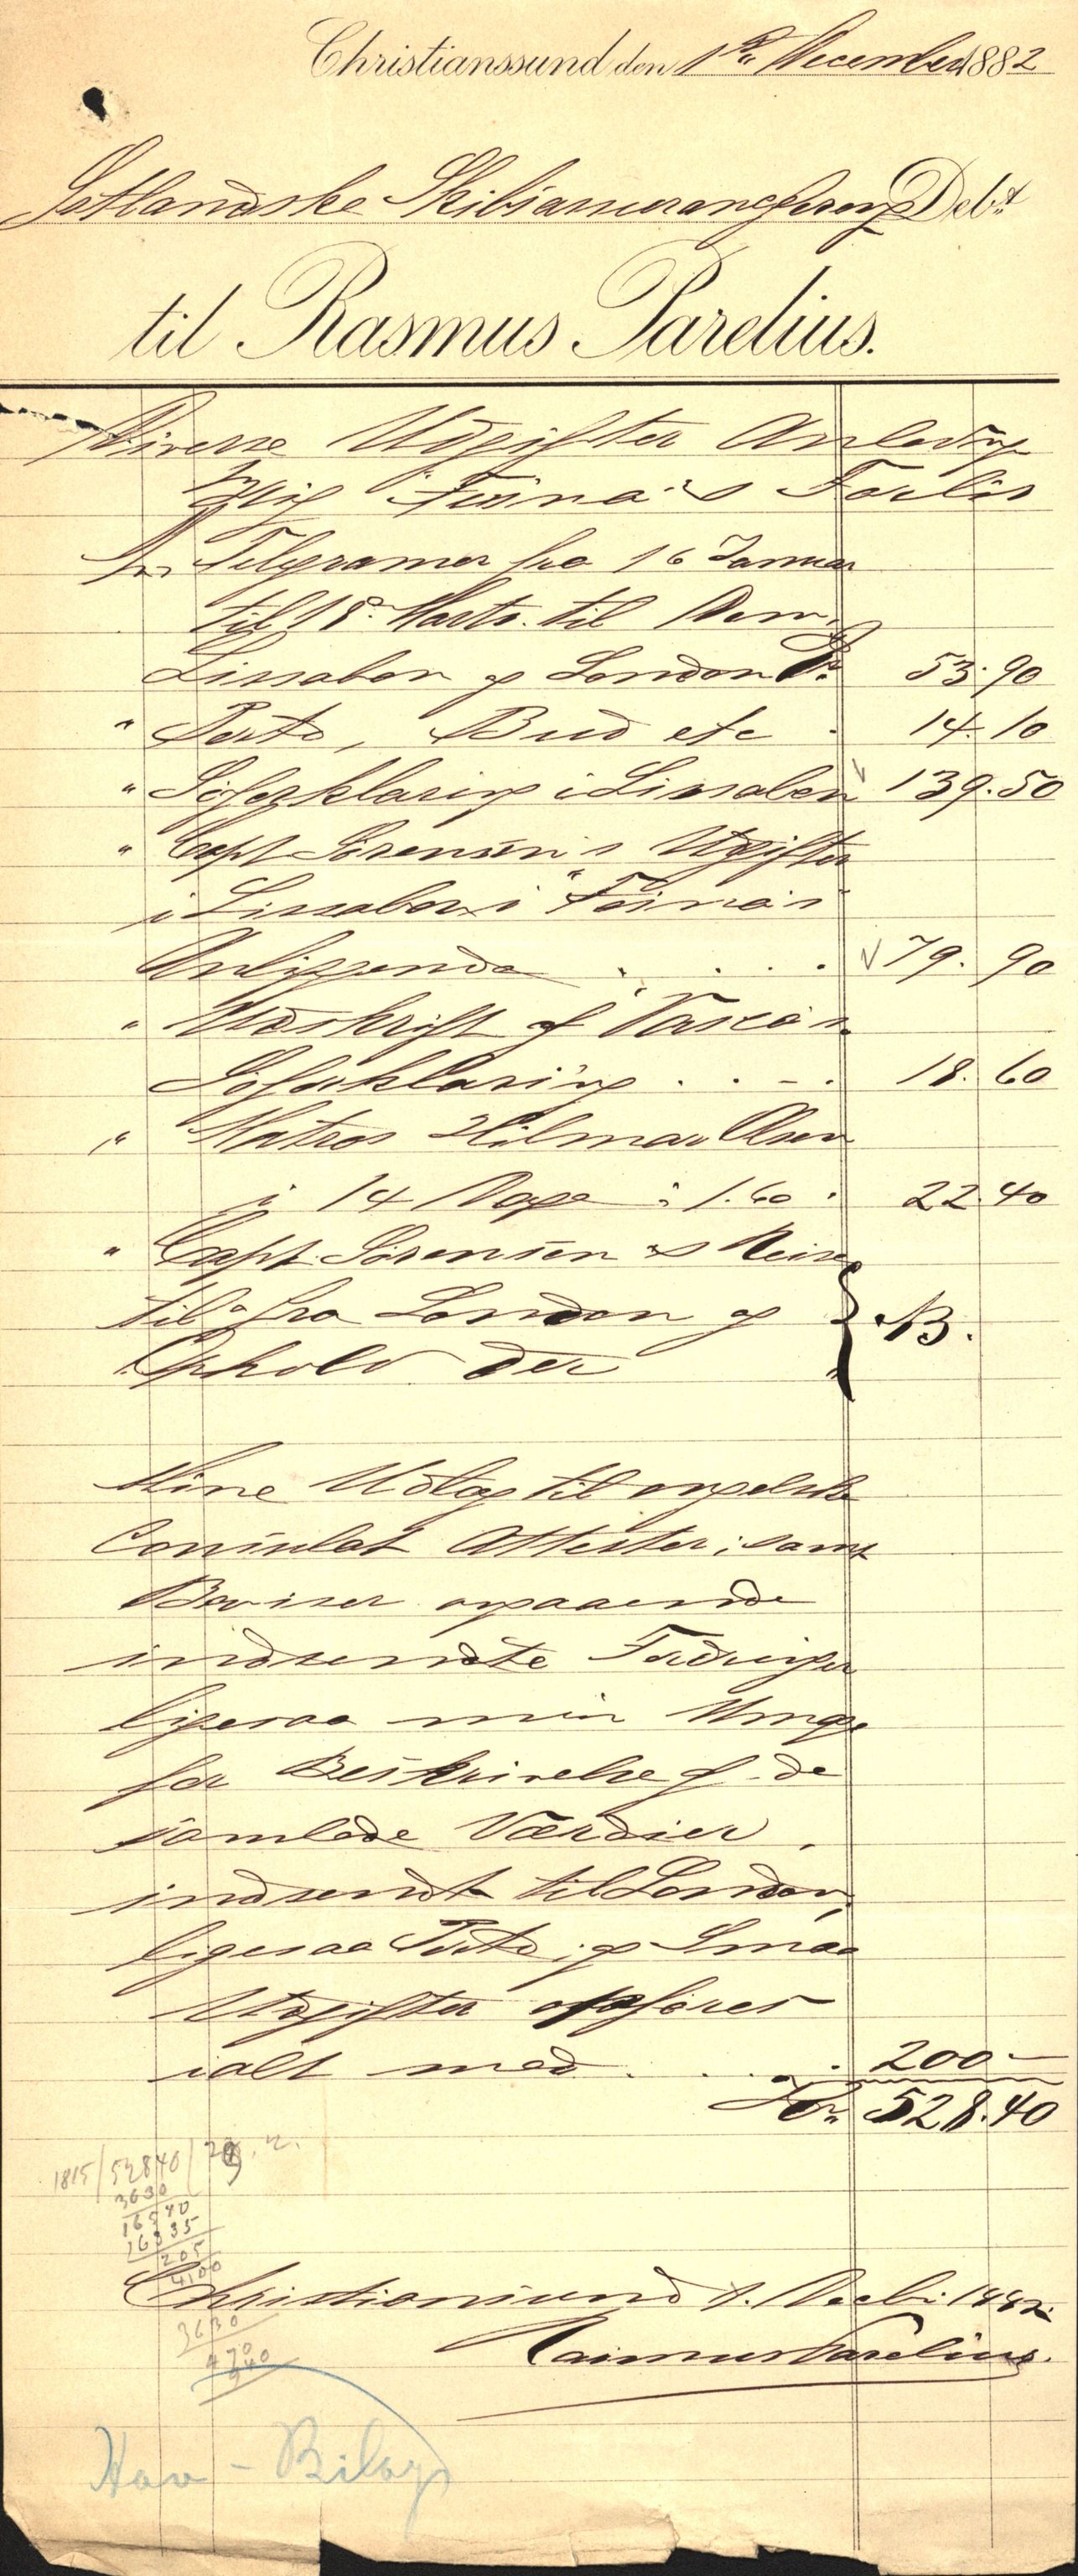 Christianssund den 1ste December 1882
Debt
til Rasmus Parelius.
Diverse Udgifter Anledng
Brig "Finna"s Forlis
Telegramer fra 16 Januar
til 18. Marts. til
Lissabon og London Kr. 53.90
" Porto, Bud etc 14.10
" Søforklaring i Lissabon 139.50
" Capt Sørensen's Udgifter
i Lissabon i
Anliggende . . . . 79.90
" Udskrift af
Søforklaring . . - . 18.60
" Matros Hilmar Olsen
i 14 Dage à 1.60 22.40
" Capt. Sørensen's Reise
til & fra London og
Ophold der } NB.
Mine Udlæg til engelske
Consulat Attester, samt
Beviser angaaende
indsendte Fordringer
ligesaa min Umage
for Beskrivelse af de
samlede Værdier,
indsendt til London,
ligesaa Porto, og Smaa
Udgifter opføres
ialt med . . . . 200-
Kr. 528.40
1815/52840/29.
3630
16540
16335
205
4100
Christianssund 1. Decbr 1882
3630
470
Rasmus Parelius.
Hav - Bilag